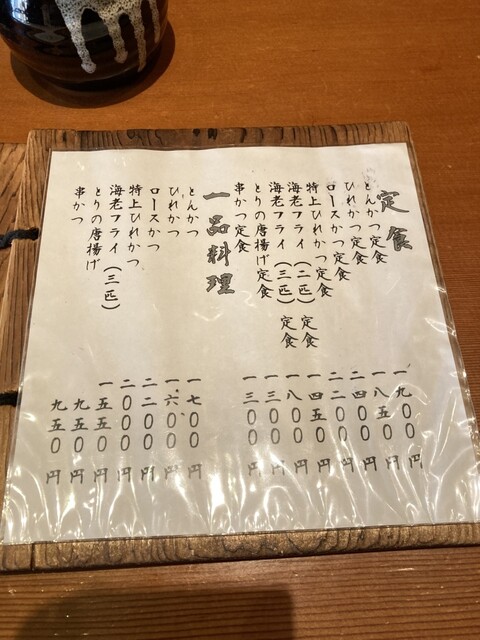 定食
とんかつ定食 一九〇〇円
ひれかつ定食 一八五〇円
ロースかつ定食 二四〇〇円
特上ひれかつ定食 二二〇〇円
海老フライ（二匹）定食 一四五〇円
海老フライ（三匹）定食 一八〇〇円
とりの唐揚げ定食 一三〇〇円
串かつ定食 一三〇〇円
一品料理
とんかつ 一七〇〇円
ひれかつ 一六〇〇円
ロースかつ 二二〇〇円
特上ひれかつ 二〇〇〇円
海老フライ（三匹） 一五五〇円
とりの唐揚げ 九五〇円
串かつ 九五〇円